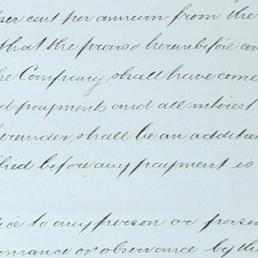 per cent per annum from the
that the proviso hereinbefore
the Company shall have come
payments and all interest
hereunder, shall be an addition
before any payment is
to any person or person
or observance by the